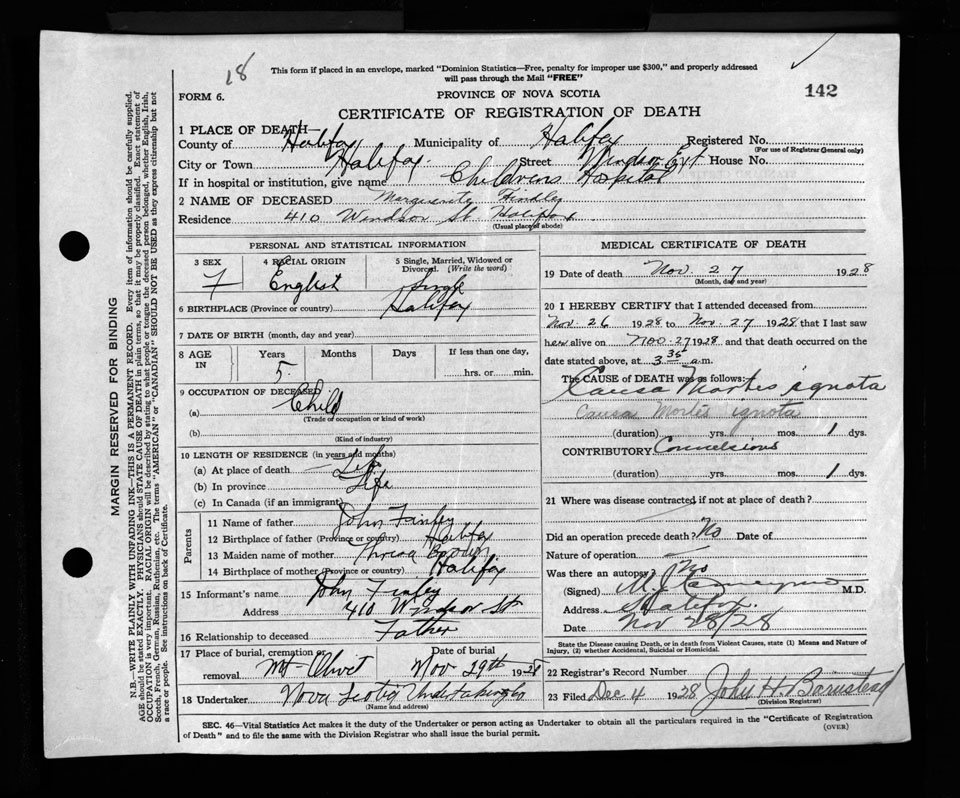 18
This form if placed in an envelope, marked "Dominion Statistics—Free, penalty for improper use $300," and properly addressed
will pass through the Mail "FREE"
FORM 6.
PROVINCE OF NOVA SCOTIA
142
CERTIFICATE OF REGISTRATION OF DEATH
1 PLACE OF DEATH—
County of Halifax Municipality of Halifax Registered No.
(For use of Registrar General only)
City or Town Halifax Street Windsor Ext House No.
If in hospital or institution, give name Childrens Hospital
2 NAME OF DECEASED Marguerite Finley
Residence 410 Windsor St Halifax
(Usual place of abode)
PERSONAL AND STATISTICAL INFORMATION
3 SEX 4 RACIAL ORIGIN 5 Single, Married, Widowed or Divorced. (Write the word)
F English Single
6 BIRTHPLACE (Province or country) Halifax
7 DATE OF BIRTH (month, day and year)
8 AGE IN Years Months Days If less than one day,
5. hrs. or min.
9 OCCUPATION OF DECEASED
(a) Child
(Trade or occupation or kind of work)
(b)
(Kind of industry)
10 LENGTH OF RESIDENCE (in years and months)
(a) At place of death — Life
(b) In province Life
(c) In Canada (if an immigrant)
Parents
11 Name of father John Finley
12 Birthplace of father (Province or country) Halifax
13 Maiden name of mother Brown
14 Birthplace of mother (Province or country) Halifax
15 Informant's name John Finley
Address 410 Windsor St
16 Relationship to deceased Father
17 Place of burial, cremation or removal Mt Olivet Date of burial Nov 29th 1928
18 Undertaker Nova Scotia Undertaking Co
(Name and address)
MEDICAL CERTIFICATE OF DEATH
19 Date of death Nov. 27 1928
(Month, day and year)
20 I HEREBY CERTIFY that I attended deceased from
Nov. 26 1928 to Nov. 27 1928 that I last saw
her alive on Nov. 27 1928 and that death occurred on the
date stated above, at 3.35 a.m.
The CAUSE OF DEATH was as follows:
Causa Mortis ignota
Causa Mortis ignota
(duration) yrs. mos. 1 dys.
CONTRIBUTORY Convulsions
(duration) yrs. mos. 1 dys.
21 Where was disease contracted if not at place of death?
Did an operation precede death? No Date of
Nature of operation —
Was there an autopsy? No
(Signed) M.D.
Address Halifax.
Date Nov 28/28
State the Disease causing Death, or in death from Violent Causes, state (1) Means and Nature of
Injury, (2) whether Accidental, Suicidal or Homicidal.
22 Registrar's Record Number
23 Filed Dec 4 1928 John H. Barnstead
(Division Registrar)
SEC. 46—Vital Statistics Act makes it the duty of the Undertaker or person acting as Undertaker to obtain all the particulars required in the "Certificate of Registration
of Death" and to file the same with the Division Registrar who shall issue the burial permit.
(OVER)
MARGIN RESERVED FOR BINDING
N.B.—WRITE PLAINLY WITH UNFADING INK—THIS IS A PERMANENT RECORD. Every item of information should be carefully supplied.
AGE should be stated EXACTLY. PHYSICIANS should STATE CAUSE OF DEATH in plain terms, so that it may be properly classified. Exact statement of
OCCUPATION is very important. RACIAL ORIGIN will be described by stating to what people or tongue the deceased person belonged, whether English, Irish,
Scotch, French, German, Russian, Ruthenian, etc. The terms "AMERICAN" or "CANADIAN" SHOULD NOT BE USED as they express citizenship but not
a race or people. See instructions on back of Certificate.